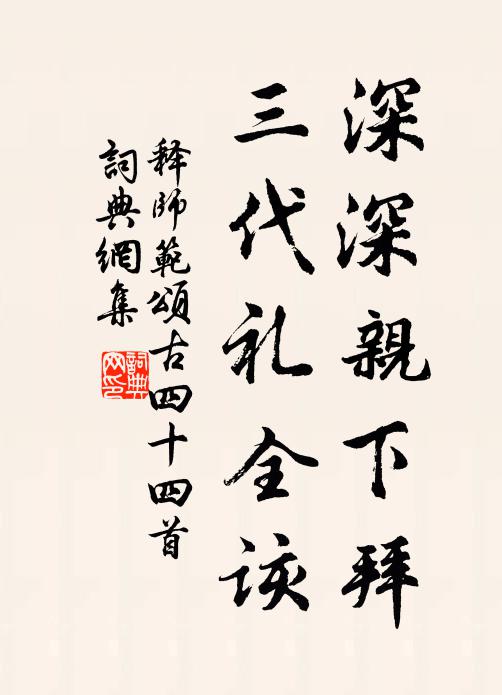 深深親下拜
三代礼全該
释師範頌古四十四首
詞典網集
詞典網印